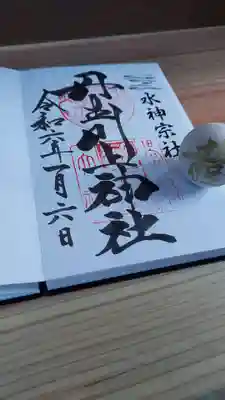 水神宗社
丹生川上神社
令和二年一月六日